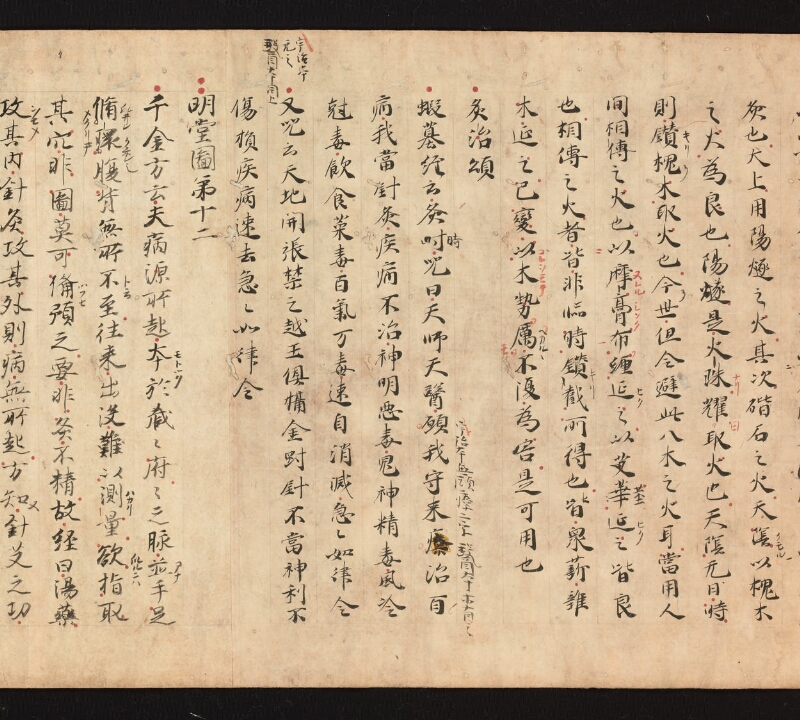 灸也天上用陽燧之火其次磑石之火天陰以槐木
之火為良也陽燧是火珠耀取火也天陰无日時
則鑽槐木取火也今世但令避此八木之火耳當用人
間相傳之火也以摩膏布纏延之以艾莖延之皆良
也相傳之火者皆非臨時鑽截所得也皆衆薪雜
木延之已變以木勢厲不復為害是可用也
灸治頌
蝦蟇經云灸時咒曰天師天醫願我守来療治百
病我當針灸疾病不治神明惡毒鬼神精毒風冷
尅毒飲食藥毒百氣万毒速自消滅急〻如律令
又咒云天地開張禁之越王俱備金對針不當神利不
傷損疾病速去急〻如律令
明堂圖第十二
千金方云夫病源所起本於蔵〻府〻之脉並手足
脩環腹背無所不至往来出没難以測量欲指取
其穴非圖莫可猶預之要非灸不精故經曰湯藥
攻其内針灸攻其外則病無所起方知針艾之功